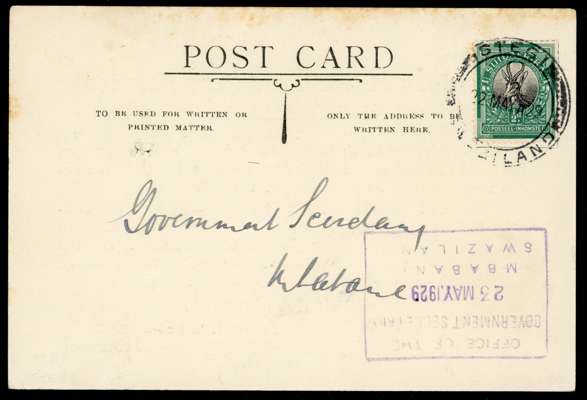 POST CARD
TO BE USED FOR WRITTEN OR
PRINTED MATTER.
ONLY THE ADDRESS TO BE
WRITTEN HERE.
STEGI
22 MAY
POSSEEL-INKOMSTE
Government Secretary
Mbabane.
OFFICE OF THE
GOVERNMENT SECRETARY
23 MAY.1929
MBABAN
SWAZILAN